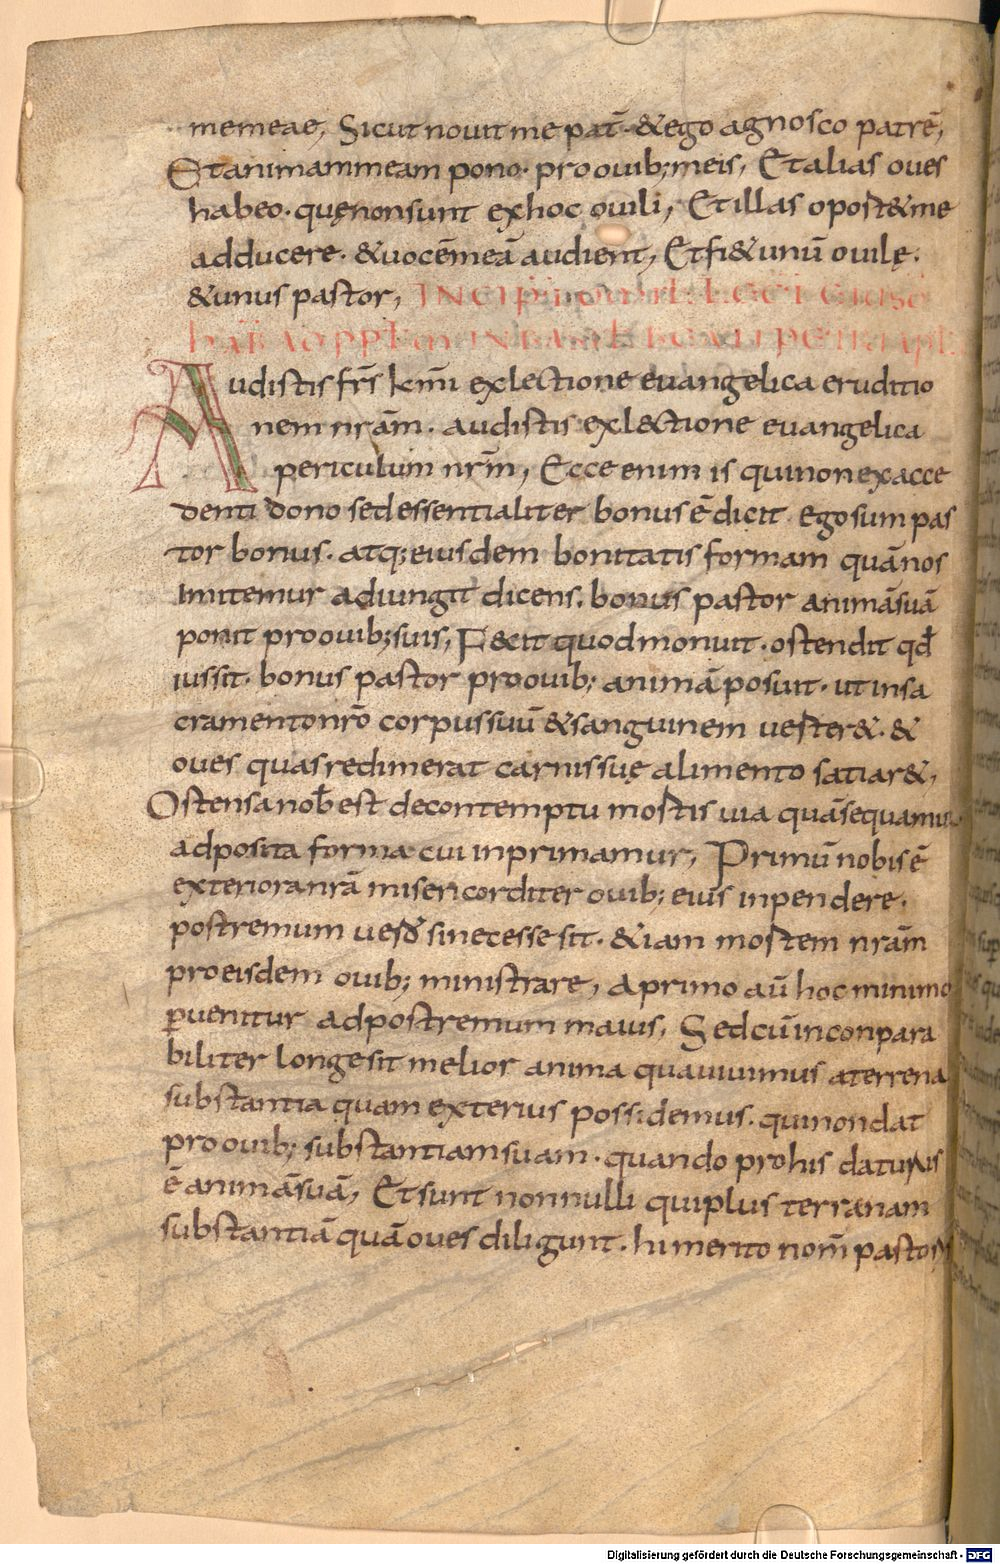 memeae, Sicut nouit me pat̄. & ego agnosco patrē,
Et animam meam pono. pro ouib; meis, Et alias oues
habeo. quę non sunt ex hoc ouili, Et illas oport& me
adducere. & uocē meā audient, Et fi& unū ouilę.
& unus pastor,
Audistis fr̄s km̄i ex lectione euangelica eruditio
nem nr̄am. audistis ex l&tione euangelica
periculum nr̄m, Ecce enim is qui non ex acce
denti dono sed essentialiter bonus ē dicit ego sum pas
tor bonus. atq; eiusdem bonitatis formam quā nos
imitemur adiungit dicens. bonus pastor animā suā
ponit pro ouib; suis, Fecit quod monuit. ostendit qd̄
iussit. bonus pastor pro ouib; animā posuit. ut in sa
cramento nr̄o corpus suū & sanguinem uerter&. &
oues quas redimerat carnis suę alimento satiar&,
Ostensa nob̄ est de contemptu mortis uia quā sequamur
adposita forma cui inprimamur, Primū nobis ē
exteriora nr̄a misericorditer ouib; eius inpendere.
postremum uero si necesse sit. &iam mortem nr̄am
pro eisdem ouib; ministrare, A primo aū hoc minimo
ꝑuenitur ad postremum maius, Sed cū inconpara
biliter longe sit melior anima qua uiuimus a terrena
substantia quam exterius possidemus. qui non dat
pro ouib; substantiam suam. quando pro his daturus
ē animā suā, Et sunt nonnulli qui plus terranam
substantiā quā oues diligunt. hi merito nom̄ pastoris
Digitalisierung gefördert durch die Deutsche Forschungsgemeinschaft - DFG